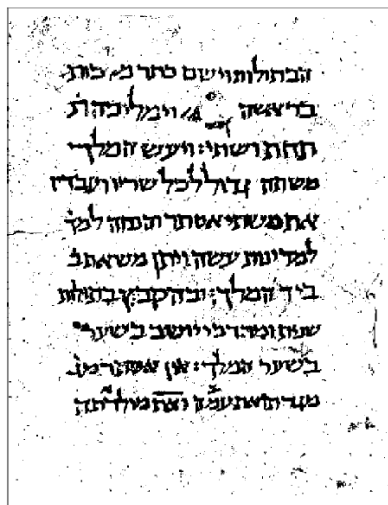 הבתולות וישם כתר מ׳ כות
בראשה וימליכה ת
תחת ושתי: ויעש המלך
משתה גדול לכל שריו ועבדיו
את משתי אסתר והנחה למד
למדינות עשה ויתן משאת כ
ביד המלך: ובהקבץ בתולות
שנית ומרדכי יושב בשער
בשער המלך: אין אסתר מג
מגדת ואת עמה